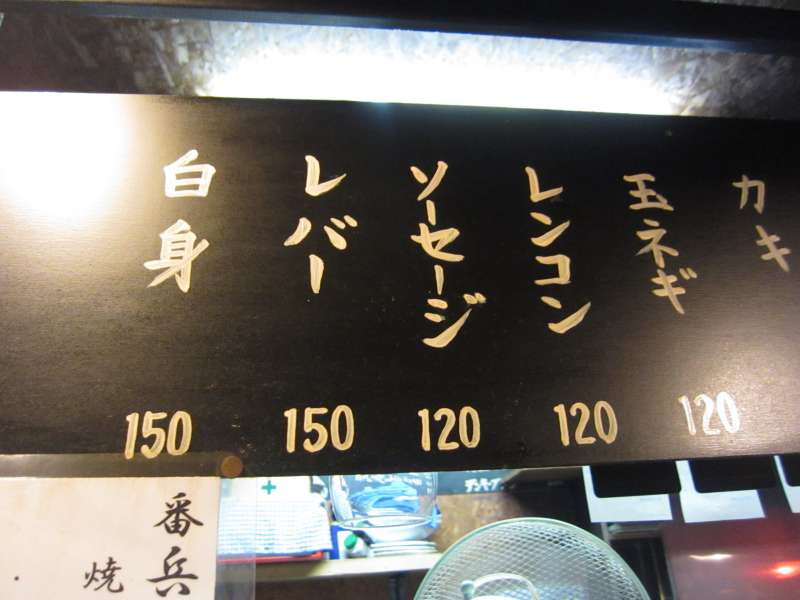 カキ
玉ネギ
120
レンコン
120
ソーセージ
120
レバー
150
白身
150
番兵
焼